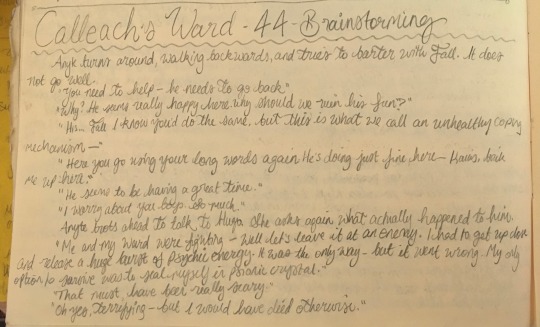 Calleach's Ward - 44 - Brainstorming
Anyte turns around, walking backwards, and tries to barter with Fall. It does
not go well.
"You need to help - he needs to go back"
"Why? He seems really happy here, why should we ruin his fun?"
Fall I know you'd do the same, but this is what we call an unhealthy coping
mechanism—"
"Here you go using your long words again He's doing just fine here— back
me up here."
"He seems to be having a great time."
"I worry about you boys. So much."
Anyte trots ahead to talk to Hugo. She asks again what actually happened to him.
"Me and my Ward were fighting - well let's leave it at an enemy. I had to get up close
and release a huge burst of psychic energy. It was the only way - but it went wrong. My only
option to survive was to seal myself in psionic crystal."
"That must have been really scary."
"Oh yes, terrifying - but I would have died otherwise."